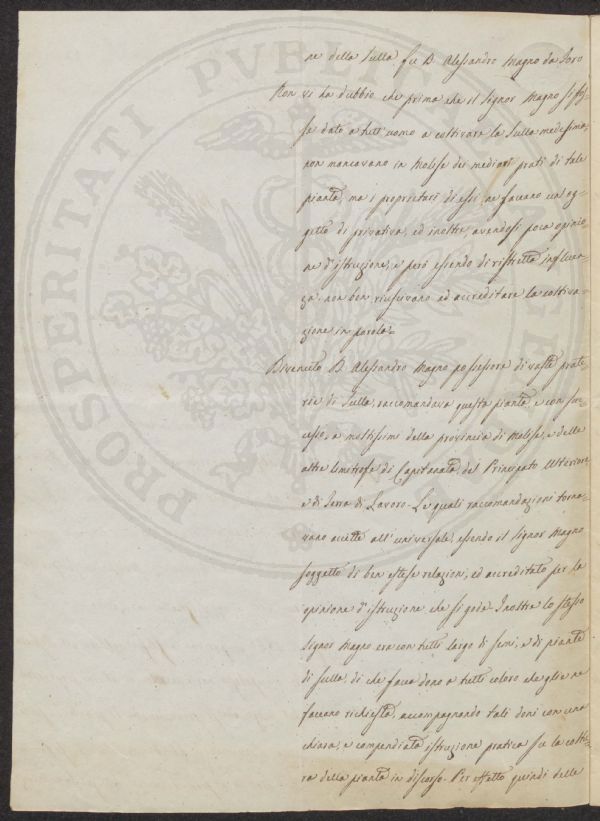 ne della Sulla fu D. Alessandro Magno da Toro
Non vi ha dubbio che prima che il Signor Magno si fos-
se dato a tutt'uomo a coltivare la Sulla medesima,
non mancavano in Molise dei mediocri prati di tale
pianta, ma i proprietarî di essi, ne facevano un og-
getto di privativa, ed inoltre, avendosi poca opinio-
ne d'istruzione, e però essendo di ristretta influen-
za, non ben riuscivano ad accreditare la coltiva-
zione in parola=
Divenuto D. Alessandro Magno possessore di vaste prate-
rie di Sulla, raccomandava questa pianta, e con suc-
cesso, a moltissimi della provincia di Molise, e delle
altre limitrofe di Capitanata, del Principato Ulteriore
e di Terra di Lavoro. Le quali raccomandazioni torna-
vano accette all'universale, essendo il Signor Magno
soggetto di ben estese relazioni, ed accreditato per la
opinione d'istruzione che si gode. Inoltre lo stesso
Signor Magno era con tutti largo di semi, e di piante
di sulla, di che facea dono a tutti coloro che gliene
facevano richiesta, accompagnando tali doni con una
chiara, e compendiata istruzione pratica su la coltu-
ra della pianta in discorso. Per effetto quindi delle
PROSPERITATI PVBLICAE AVGENDAE